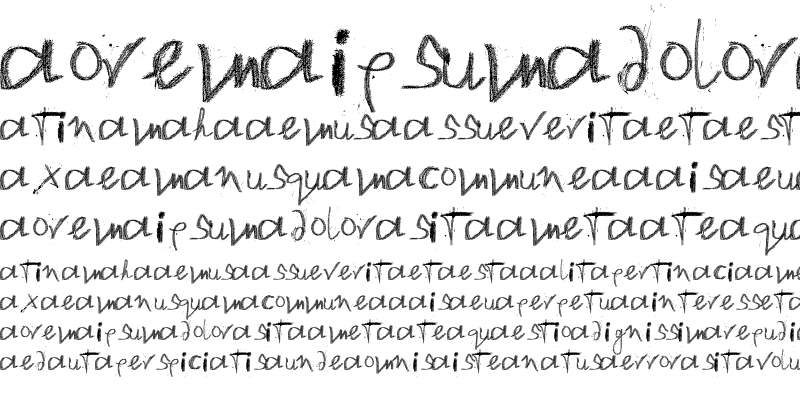 aoremaipsumadolor
atinamahaaemusaassueveritaetaest
axaeamanusquamacommuneaaaisaeu
aoremaipsumadolorasitaametaateaqu
atinamahaaemusaassueveritaetaestaaalitapertinaciaame
axaeamanusquamacommuneaaaisaeuaperpetuaainteresseta
aoremaipsumadolorasitaametaateaquaestioadignissimarepudi
aedautaperspiciatisaundeaomnisaisteanatusaerrorasitavolu